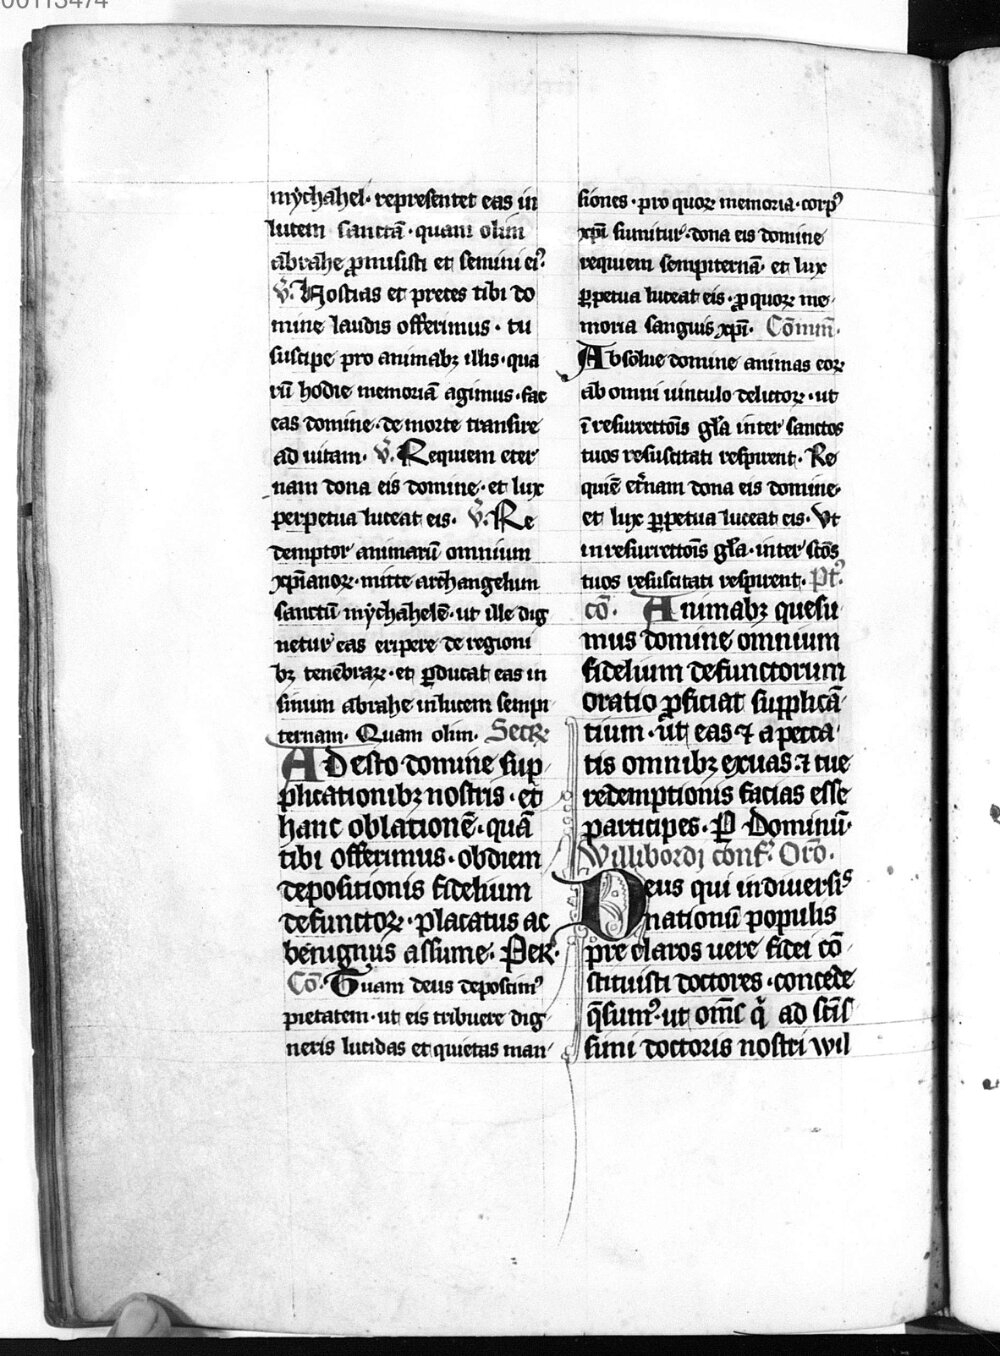 00113474
mychahel· representet eas in
lutem sanctā· quam olim
abrahe ꝓmisisti et semini eiꝰ
V̄· Hostias et preces tibi do
mine laudis offerimus · tu
suscipe pro animabꝫ illis· qua
rū hodie memoriā agimus· fac
eas domine· de morte transire
ad uitam· V̄· Requiem eter
nam dona eis domine· et lux
perpetua luceat eis· V̄· Re
demptor animarū omnium
xp̄ianoꝝ· mitte archangelum
sanctū mychahelē· ut ille dig
netur eas eripere de regioni
bꝫ tenebraꝝ· et ꝑducat eas in
sinum abrahe in lucem sempi
ternam· Quam olim· Secꝝ·
Adesto domine sup
plicationibꝫ nostris· et
hanc oblationē· quā
tibi offerimus· ob diem
depositionis fidelium
defunctoꝝ· placatus ac
benignus assume· Per·
Cō· Tuam deus deposcimꝰ
pietatem· ut eis tribuere dig
neris lucidas et quietas man
siones· pro quoꝝ memoria· corpꝰ
xp̄i sumitur· dona eis domine
requiem sempiternā· et lux
ꝑpetua luceat eis· ꝓ quoꝝ me
moria sanguis xp̄i· Cōmū·
Absolue domine animas eoꝝ
ab omni uinculo delictoꝝ· ut
ī resurrectōis gl̄a inter sanctos
tuos resuscitati respirent· Re
quiē et̄nam dona eis domine·
et lux ꝑpetua luceat eis· Vt
in resurrectōis gl̄a· inter sc̄os
tuos resuscitati respirent· Pt̄·
cō· Animabꝫ quesu
mus domine omnium
fidelium defunctorum
oratio ꝓficiat supplicā
tium· ut eas ⁊ a pecca
tis omnibꝫ exuas ⁊ tue
redemptionis facias esse
participes· P Dominū·
Willibordi conf· Oro·
Deus qui in diuersis
nationū populis
preclaros uere fidei cō
stituisti doctores· concede
q̄sumꝰ· ut om̄s q̄ ad sc̄is
simi doctoris nostri wil